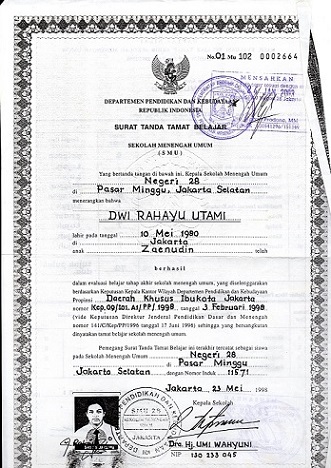 No. 01 Mu 102 0002664
MENSAHKAN
DEPARTEMEN PENDIDIKAN DAN KEBUDAYAAN
REPUBLIK INDONESIA
SURAT TANDA TAMAT BELAJAR
SEKOLAH MENENGAH UMUM
( S M U )
Yang bertanda tangan di bawah ini, Kepala Sekolah Menengah Umum
Negeri 28
di Pasar Minggu, Jakarta Selatan
menerangkan bahwa
DWI RAHAYU UTAMI
lahir pada tanggal 10 Mei 1980
di Jakarta
anak Zaenudin telah
berhasil
dalam evaluasi belajar tahap akhir sekolah menengah umum, yang diselenggarakan
berdasarkan Keputusan Kepala Kantor Wilayah Departemen Pendidikan dan Kebudayaan
Propinsi Daerah Khusus Ibukota Jakarta
nomor Kep.09/101.A1/PP/1998 tanggal 3 Februari 1998
(vide Keputusan Direktur Jenderal Pendidikan Dasar dan Menengah
nomor 141/C/Kep/PP/1996 tanggal 17 Juni 1996) sehingga yang bersangkutan
dinyatakan tamat belajar sekolah menengah umum.
Pemegang Surat Tanda Tamat Belajar ini terakhir tercatat sebagai siswa
pada Sekolah Menengah Umum Negeri 28
di Pasar Minggu
Jakarta Selatan dengan Nomor Induk : 11571
Jakarta 23 Mei 1998
Kepala Sekolah
SMU 28
JAKARTA
Dra. Hj. UMI WAHYUNI
NIP 130 233 045